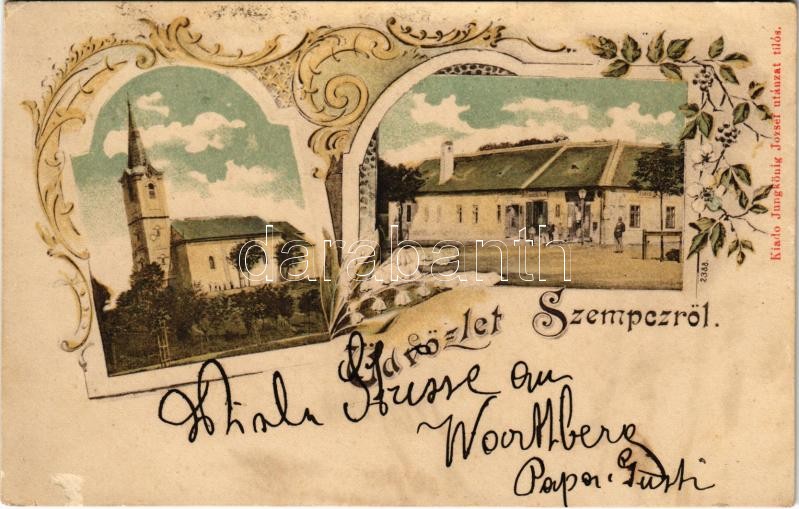 Üdvözlet Szempczről.
Kiadó Jungkönig József utánzat tilós.
2388.
Viele Grüsse an
Papa Gusti
darabanth